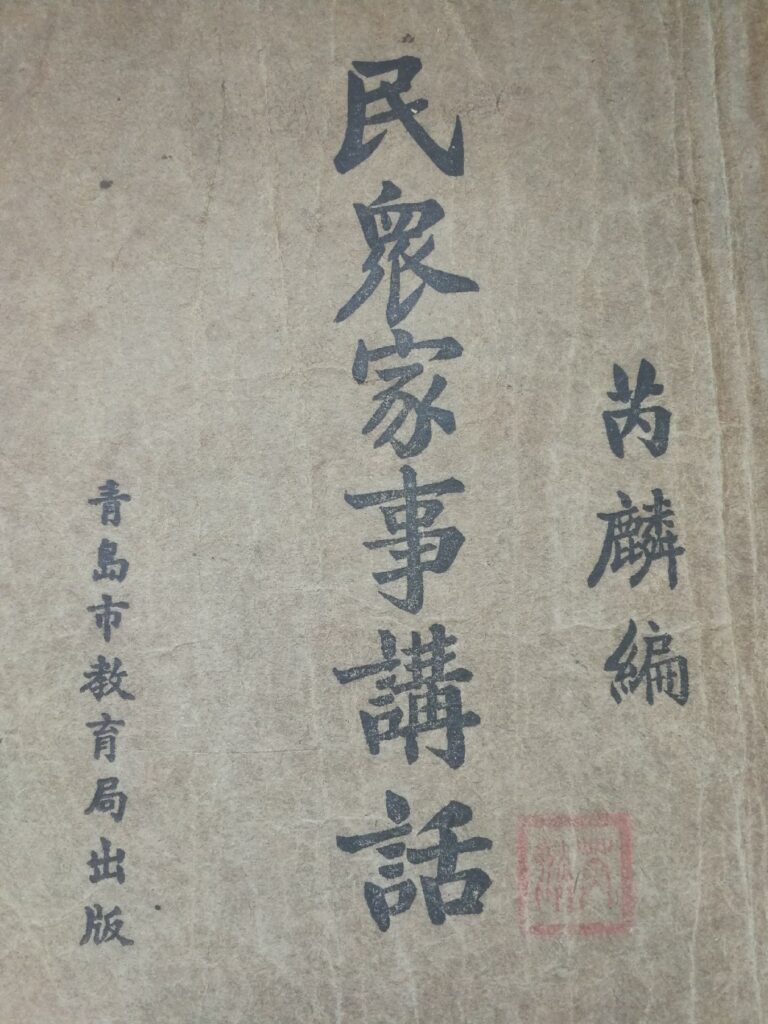 芮麟編
民衆家事講話
青島市教育局出版